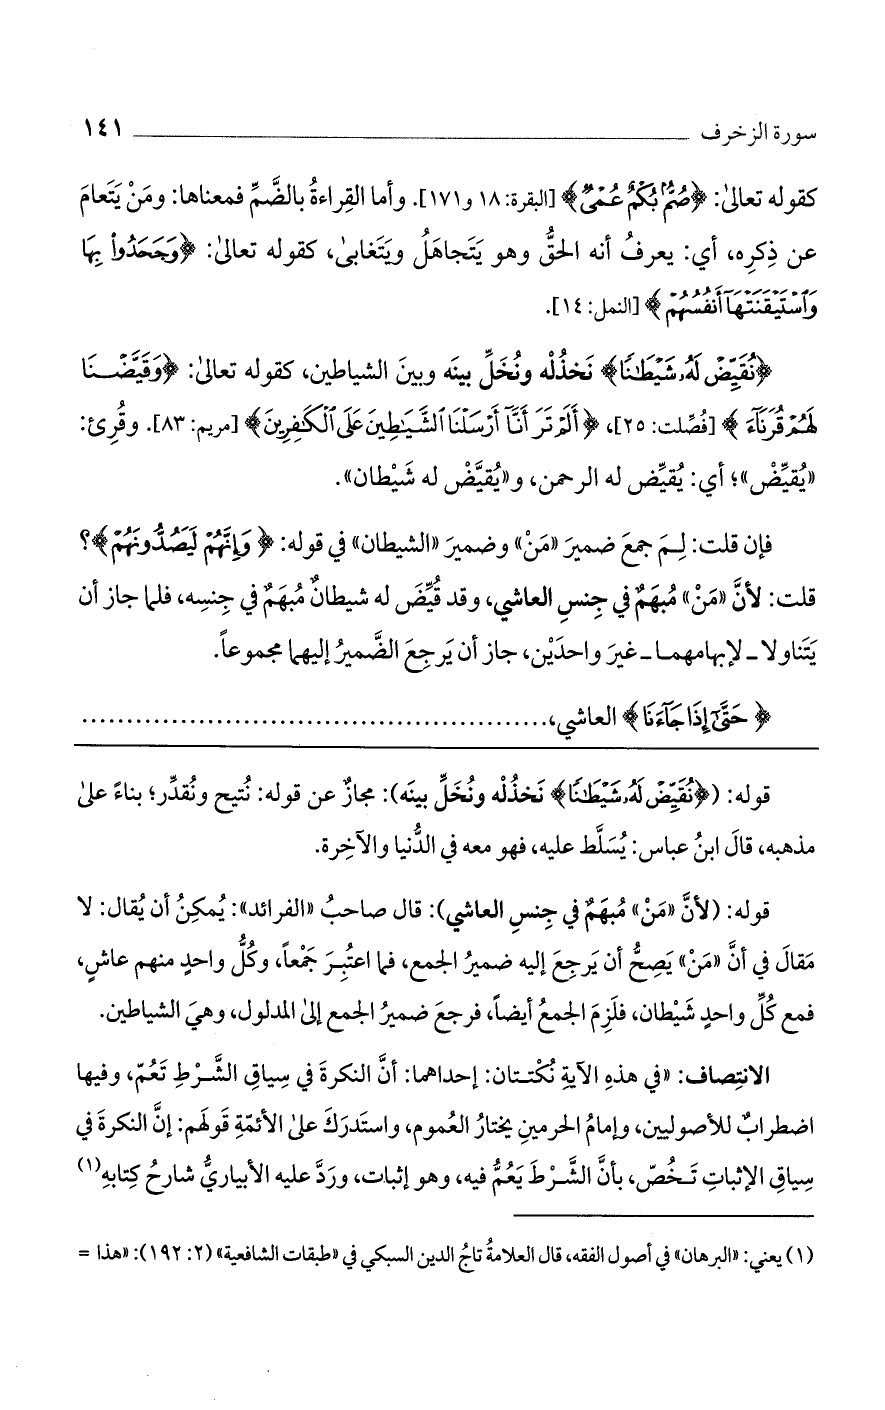 سورة الزخرف ١٤١
كقوله تعالىٰ: ﴿صُمٌّ بُكْمٌ عُمْىٌ﴾ [البقرة: ١٨ و١٧١]. وأما القِراءةُ بالضَّمِّ فمعناها: ومَنْ يَتَعامَ
عن ذِكرِه، أي: يعرفُ أنه الحقُّ وهو يَتَجاهَلُ ويَتَغابىٰ، كقوله تعالىٰ: ﴿وَجَحَدُواْ بِهَا
وَٱسْتَيْقَنَتْهَآ أَنفُسُهُمْ﴾ [النمل: ١٤].
﴿نُقَيِّضْ لَهُۥ شَيْطَٰنًا﴾ نَخذُلْه ونُخَلِّ بينَه وبينَ الشياطين، كقوله تعالىٰ: ﴿وَقَيَّضْنَا
لَهُمْ قُرَنَآءَ﴾ [فُصِّلت: ٢٥]، ﴿أَلَمْ تَرَ أَنَّآ أَرْسَلْنَا ٱلشَّيَٰطِينَ عَلَى ٱلْكَٰفِرِينَ﴾ [مريم: ٨٣]. وقُرِئ:
«يُقيِّضْ»؛ أي: يُقيِّض له الرحمن، و«يُقيَّضْ له شَيْطان».
فإن قلت: لِـمَ جمعَ ضميرَ «مَنْ» وضميرَ «الشيطان» في قوله: ﴿وَإِنَّهُمْ لَيَصُدُّونَهُمْ﴾؟
قلت: لأنَّ «مَنْ» مُبهَمٌ في جِنسِ العاشي، وقد قُيِّضَ له شيطانٌ مُبهَمٌ في جِنسِه، فلما جاز أن
يَتَناولا ـ لإبهامهمـا ـ غيرَ واحدَيْن، جاز أن يَرجِعَ الضَّميرُ إليهما مجموعاً.
﴿حَتَّىٰٓ إِذَا جَآءَنَا﴾ العاشي،..................................................
قوله: (﴿نُقَيِّضْ لَهُۥ شَيْطَٰنًا﴾ نَخذُلْه ونُخَلِّ بينَه): مجازٌ عن قوله: نُتيح ونُقدِّر؛ بناءً علىٰ
مذهبه، قالَ ابنُ عباس: يُسَلَّط عليه، فهو معه في الدُّنيا والآخِرة.
قوله: (لأنَّ «مَنْ» مُبهَمٌ في جِنسِ العاشي): قال صاحبُ «الفرائد»: يُمكِنُ أن يُقال: لا
مَقالَ في أنَّ «مَنْ» يَصِحُّ أن يَرجِعَ إليه ضميرُ الجمع، فما اعتُبِرَ جَمْعاً، وكُلُّ واحدٍ منهم عاشٍ،
فمع كُلِّ واحدٍ شَيْطان، فلَزِمَ الجمعُ أيضاً، فرجعَ ضميرُ الجمع إلىٰ المدلول، وهيَ الشياطين.
الانتِصاف: «في هذهِ الآيةِ نُكْتتـان: إحداهما: أنَّ النكرةَ في سِياقِ الشَّـرْطِ تَعُمّ، وفيها
اضطرابٌ للأصوليين، وإمامُ الحرمينِ يختارُ العُموم، واستَدرَكَ علىٰ الأئمّةِ قَولَهم: إنَّ النكرةَ في
سِياقِ الإثباتِ تَـخُصّ، بأنَّ الشَّـرْطَ يَعُمُّ فيه، وهو إثبات، ورَدَّ عليه الأبياريُّ شارحُ كِتابهِ(١)
(١) يعني: «البرهان» في أصول الفقه، قال العلامةُ تاجُ الدين السبكي في «طبقات الشافعية» (٢: ١٩٢): «هذا =